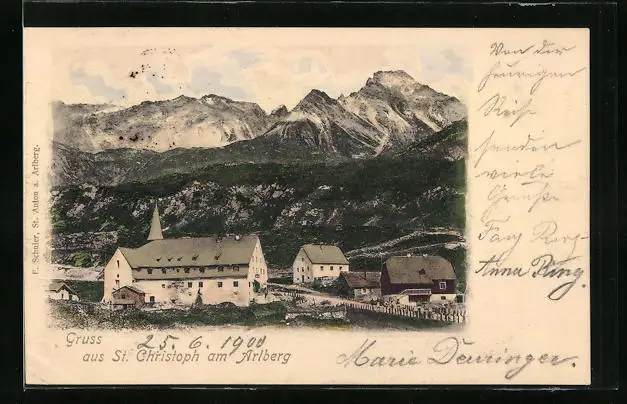 Von der
heurigen
Reise
senden
viele
Grüsse
Anna Ring
Gruss 25.6.1900
aus St. Christoph am Arlberg
Marie
F. Schuler, St. Anton a. Arlberg.